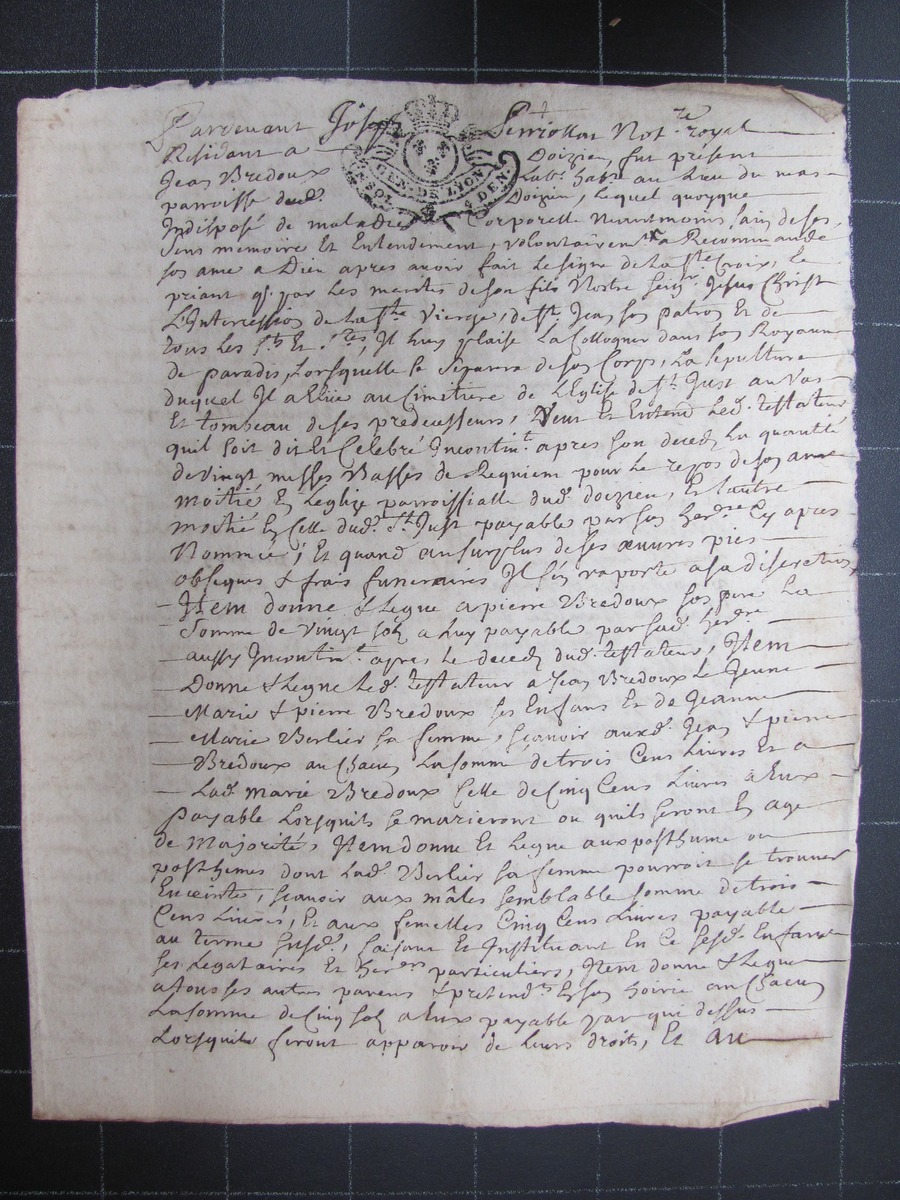 Pardevant Joseph Perriollat Not.re royal
Residant a Doizieu, fut présent
Jean Bredoux Lab.r hab.t au Lieu du mas
parroisse dud. Doizieu, Lequel quoyque
Indisposé de maladie Corporelle Neantmoins sain de ses
Sens memoire Et Entendement, volontairem.t a Recommandé
son ame a Dieu apres avoir fait Le signe de La s.te Croix, Le
priant q. par Les merites de son fils Nostre seig.r Jesus Christ
L'Intercession de La s.te Vierge, de s.t Jean son patron Et de
tous Les s.ts Et s.tes, Il Luy plaise La Colloquer dans son Royaume
de paradis, Lorsquelle se separera de son Corps, La sepulture
duquel Il a Elüe au Cimetiere de L'Eglise de s.t Just au Vas
Et tombeau de ses predecesseurs, Veut Et Entend Led. testateur
quil soit dit Et Celebré Incontin.t apres son deced La quantité
de vingt messes Basses de Requiem pour Le repos de son ame
moitié En Leglize parroissialle dud. doizieu, Et Lautre
moitié En Celle dud. S.t Just payable par son her.re Cy apres
Nommée; Et quand au surplus de ses œuvres pies
obseques & frais funeraires Il s'en raporte a sa discretion
Item donne & Legue a pierre Bredoux son pere La
Somme de vingt sols a Luy payable par sad. her.re
aussy Incontin.t apres Le deced dud. testateur, Item
Donne & Legue Led. testateur a Jean Bredoux Le Jeune
Marie & pierre Bredoux ses Enfans Et de Jeanne
Marie Berlier sa femme, sçavoir auxd. Jean & pierre
Bredoux au Chacun La somme de trois Cens Livres Et a
Lad. marie Bredoux Celle de Cinq Cens Livres a Eux
payable Lorsquils se marieront ou quils seront En age
de Majorité, Item donne Et Legue aux posthume ou
posthumes dont Lad. Berlier sa femme pourroit se trouver
Enceinte, sçavoir aux mâles semblable somme de trois
Cens Livres, Et aux femelles Cinq Cens Livres payable
au terme susd., faisant Et Instituant En Ce sesd. Enfans
ses Legataires Et her.ers particuliers, Item donne & Legue
a tous ses autres parens & pretend.ts En son hoirie au Chacun
La somme de Cinq sols a Eux payable par qui dessus
Lorsquils feront apparoir de Leurs droits, Et au
GEN. DE LYON
SOL 4 DEN.